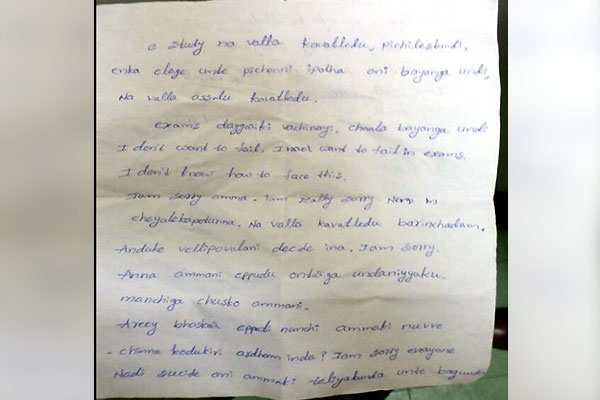 e study na valla kavatledu, pichilesthundi,
enka elage unte pichonni ipotha ani bayanga undi,
Na valla assalu kavatledu.
exams daggariki vachinayi, chaala bayanga undi
I don't want to fail. I never want to fail in exams.
I don't know how to face this.
I am sorry amma. iam really sorry nenu m
cheyalekapotunna. Na valla kavatledu barinchadam.
Anduke vellipovalani decide ina. I am sorry.
Anna ammani eppudu ontariga undaniyyaku.
manchiga chusko ammani.
Areey bhaskar eppati nunchi ammaki nuvve
chinna kodukivi ardham inda? I am sorry everyone
Nadi sucide ani ammaki teliyakunda unte bagundu